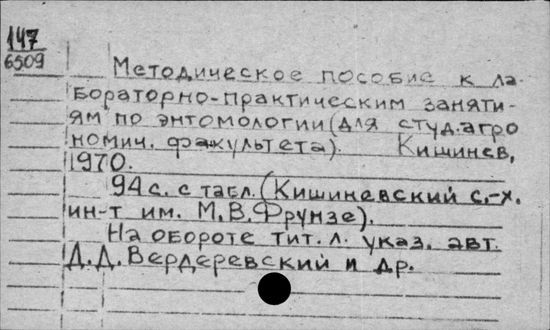 147
6509
Методическое пособие к ла-
бораторно-практическим заняти-
ям по энтомологии (для студ. агро
номич. факультета). Кишинев,
1970.
94 с. с табл. (Кишиневский с.-х.
ин-т им. М.В.Фрунзе).
На обороте тит. л. указ. авт.
Д.Д.Вердеревский и др.